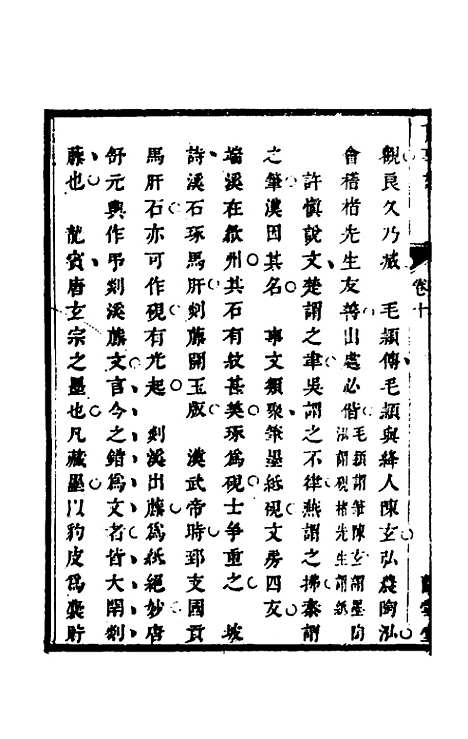 觀良久乃滅　毛穎傳毛穎與絳人陳玄弘農陶泓
會稽楮先生友善出處必偕毛穎謂筆陳玄謂墨陶
泓謂硯楮先生謂紙
許慎說文楚謂之聿吳謂之不律燕謂之拂秦謂
之筆漢因其名　事文類聚筆墨紙硯文房四友
端溪在歙州其石有紋甚美琢為硯士爭重之　坡
詩溪石琢馬肝剡藤開玉版　漢武帝時郅支國貢
馬肝石亦可作硯有光起　剡溪出藤為紙絕妙唐
舒元輿作弔剡溪藤文言今之錯為文者皆大閙剡
藤也　龍賓唐玄宗之墨也凡藏墨以豹皮為囊貯
卷十